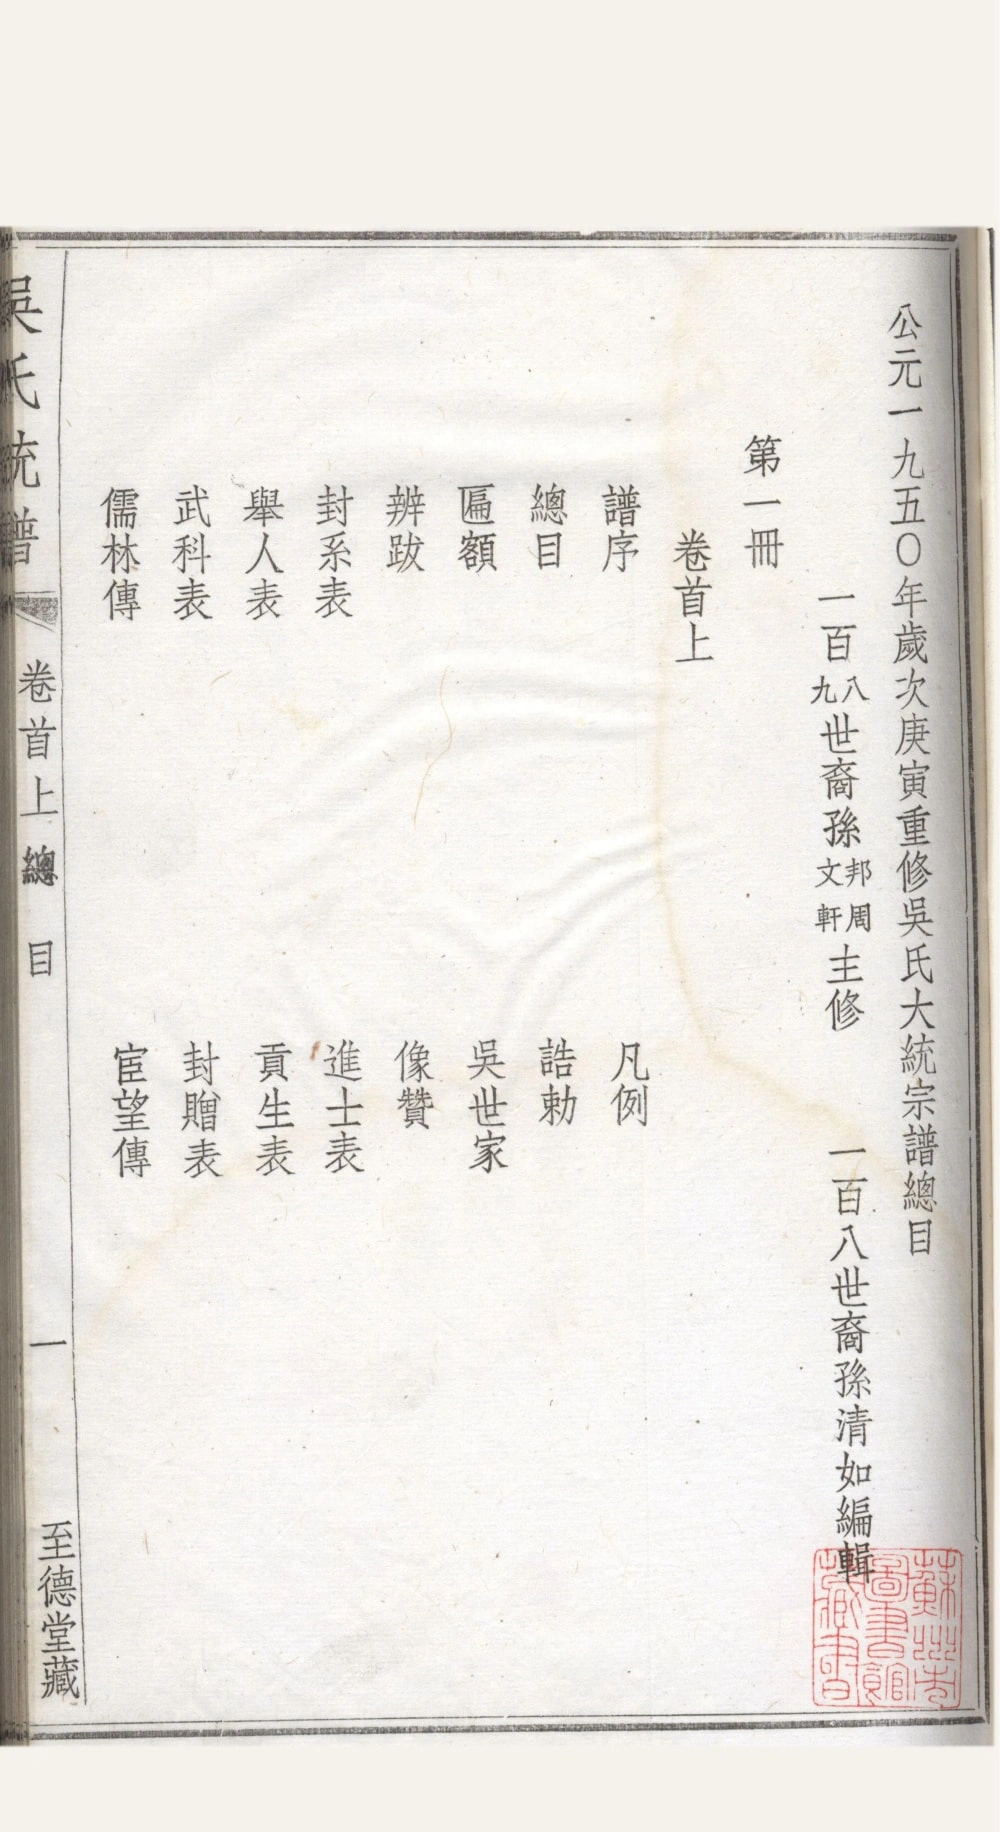 公元一九五〇年歲次庚寅重修吳氏大統宗譜總目
一百八九世裔孫邦周文軒主修 一百八世裔孫清如編輯
第一冊
卷首上
譜序 凡例
總目 誥勅
匾額 吳世家
辨跋 像贊
封系表 進士表
舉人表 貢生表
武科表 封贈表
儒林傳 宦望傳
吳氏統譜 卷首上 總目 一 至德堂藏
蘇州市圖書館藏書